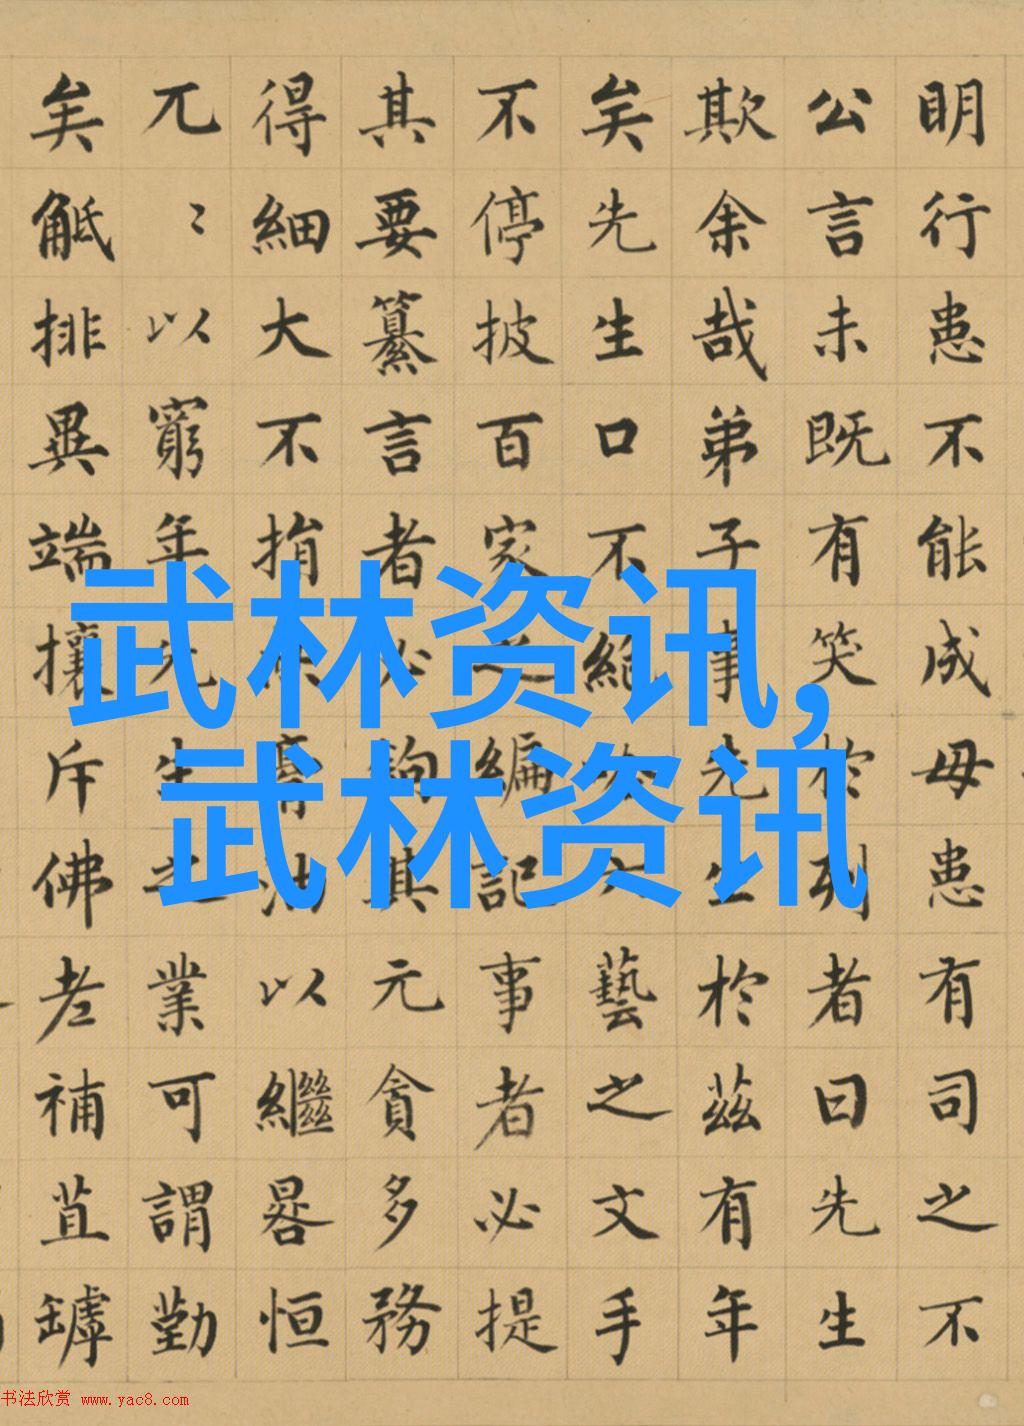 明行患不能成毋患有司之不
公言未既有笑於列者曰先生
欺余哉弟子事先生於茲有年
矣先生口不絕吟六藝之文手
不停披百家之編記事者必提
其要纂言者必鉤其元貪多務
得細大不捐焚膏油以繼晷恒
兀〻以窮年先生之業可謂勤
矣觝排異端攘斥佛老補苴罅
武林资讯,
武林资讯
书法欣赏 www.yac8.com